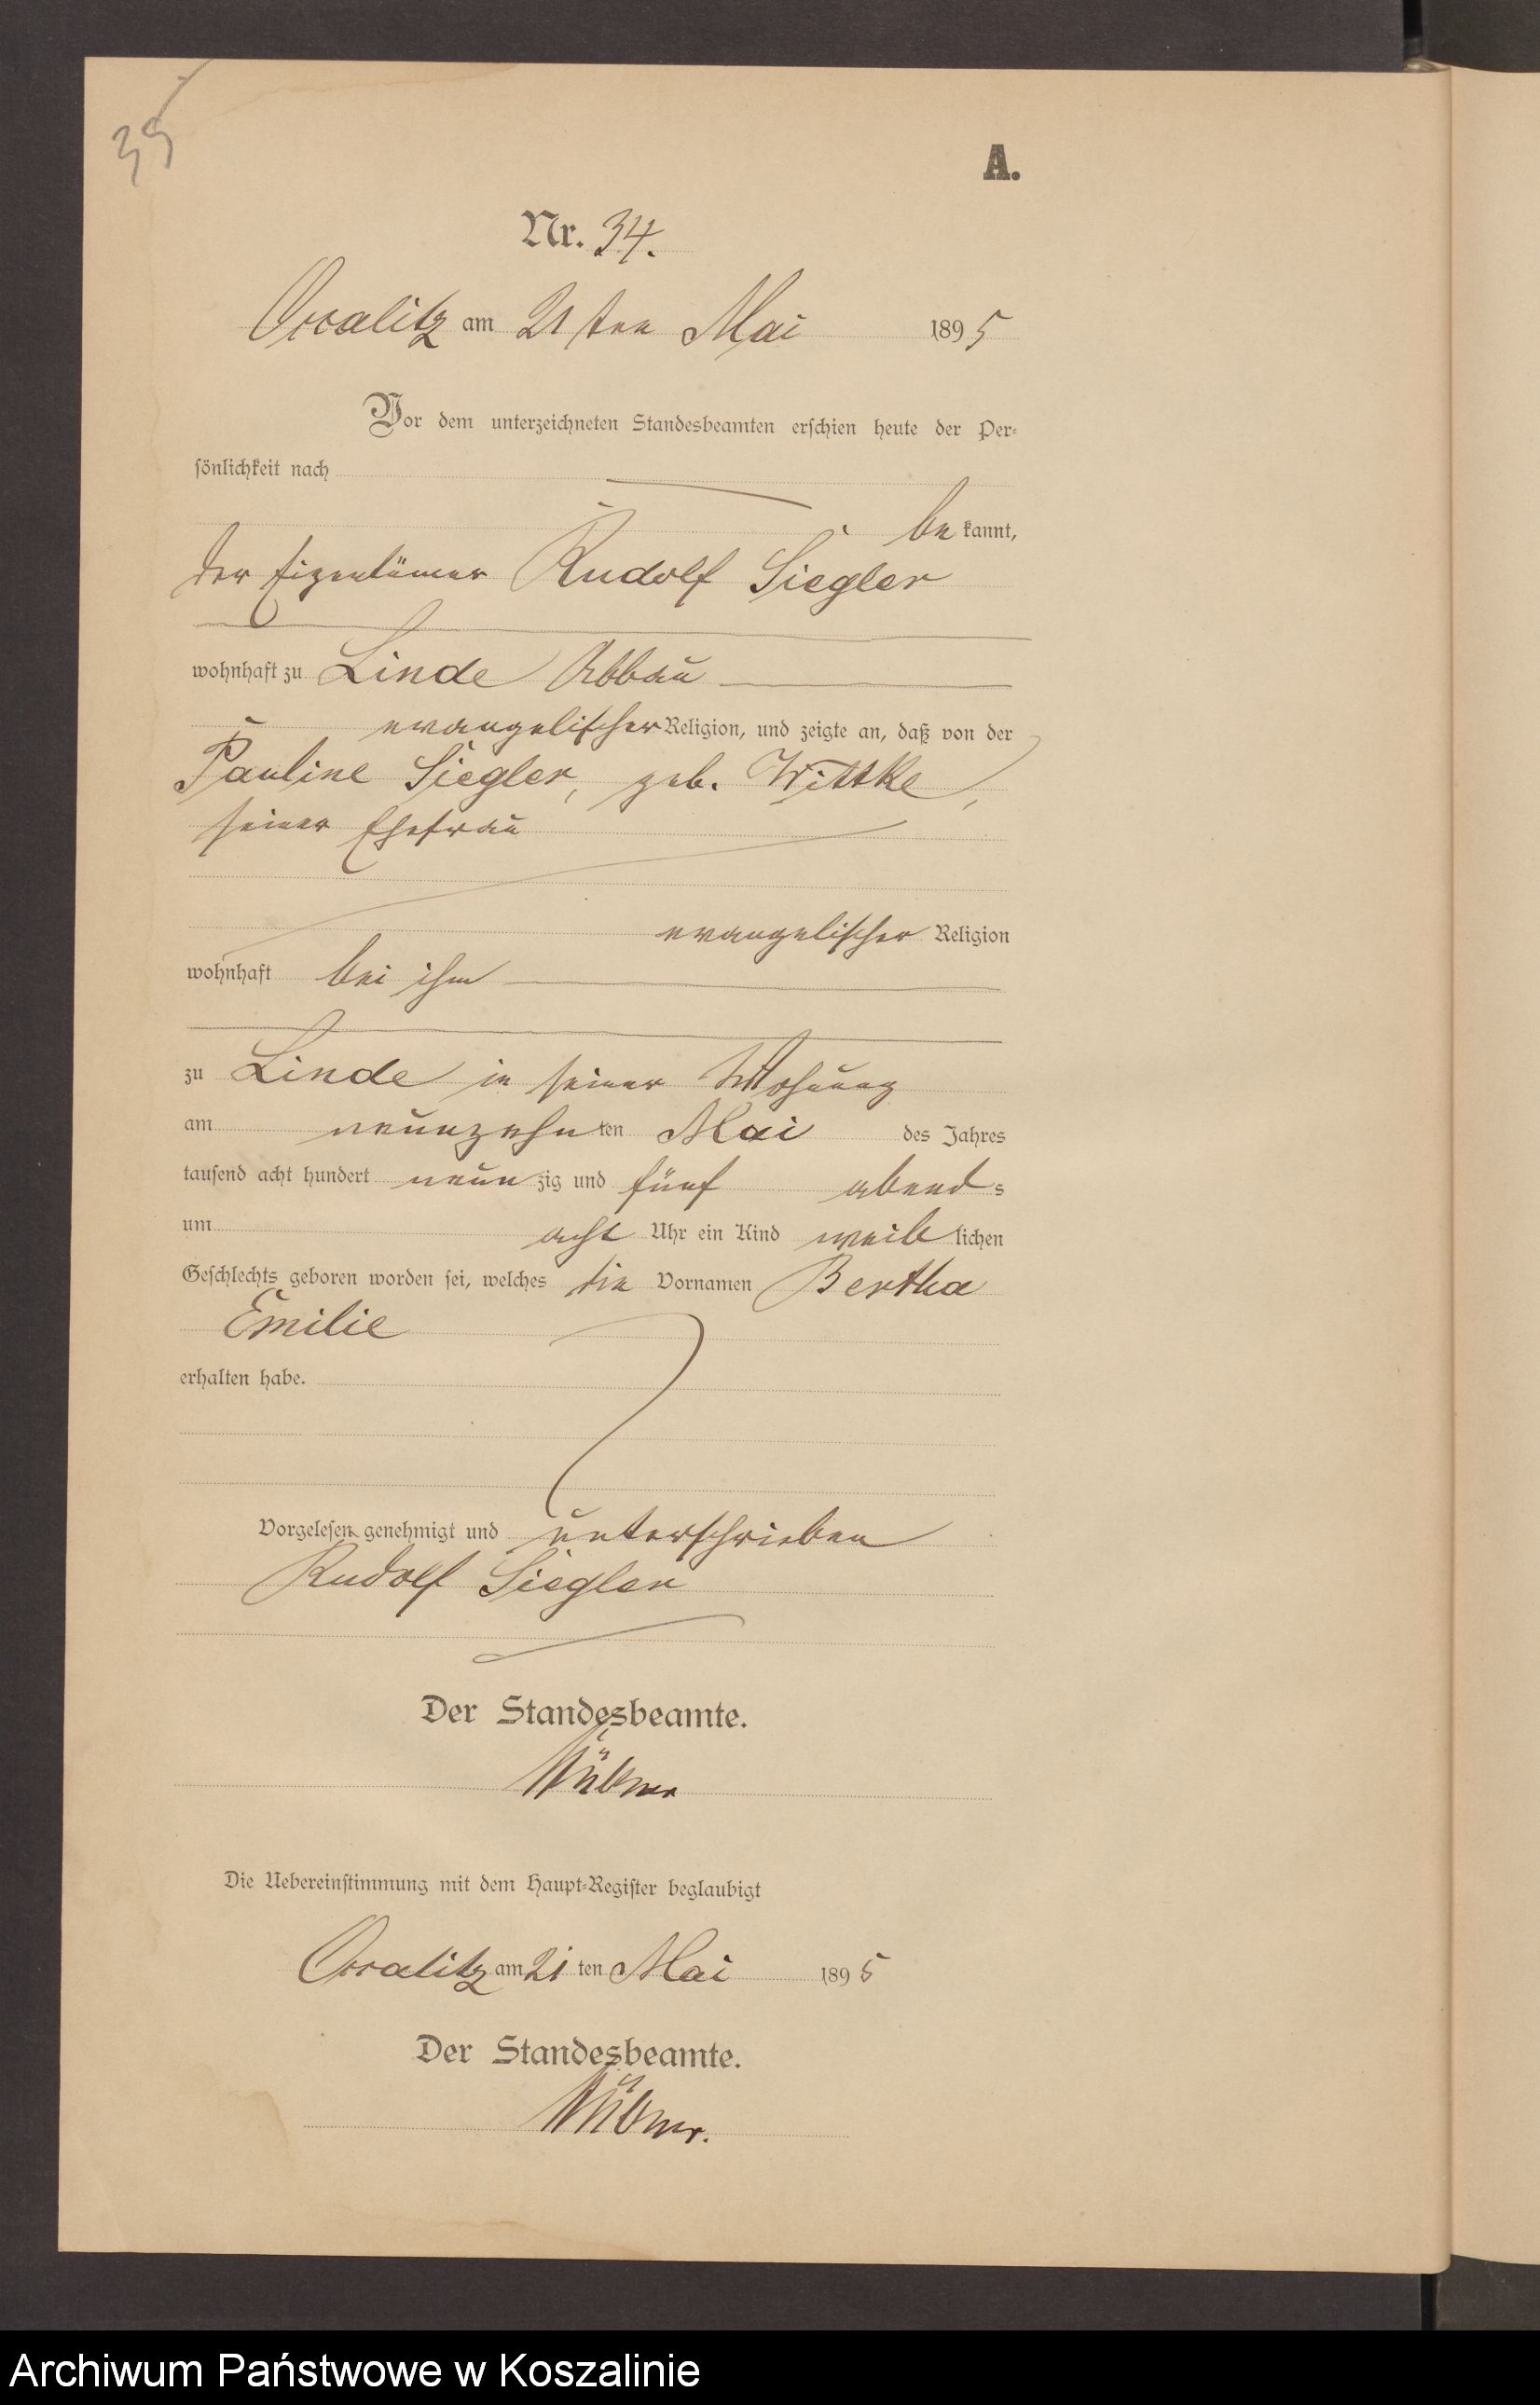 39
A.
Nr. 34.
am 21ten Mai 1895
Vor dem unterzeichneten Standesbeamten erschien heute der Per-
sönlichkeit nach
be kannt,
der Eigentümer Rudolf Siegler
wohnhaft zu Linde Abbau
evangelischer Religion, und zeigte an, daß von der
Pauline Siegler, geb. Wittke,
seiner Ehefrau
evangelischer Religion
wohnhaft bei ihm
zu Linde in seiner Wohnung
am neunzehn ten Mai des Jahres
tausend acht hundert neun zig und fünf abend-
um acht Uhr ein Kind weib lichen
Geschlechts geboren worden sei, welches die Vornamen Bertha
Emilie
erhalten habe.
Vorgelesen, genehmigt und unterschrieben
Rudolf Siegler
Der Standesbeamte.
Die Uebereinstimmung mit dem Haupt-Register beglaubigt
am 21 ten Mai 1895
Der Standesbeamte.
Archiwum Państwowe w Koszalinie